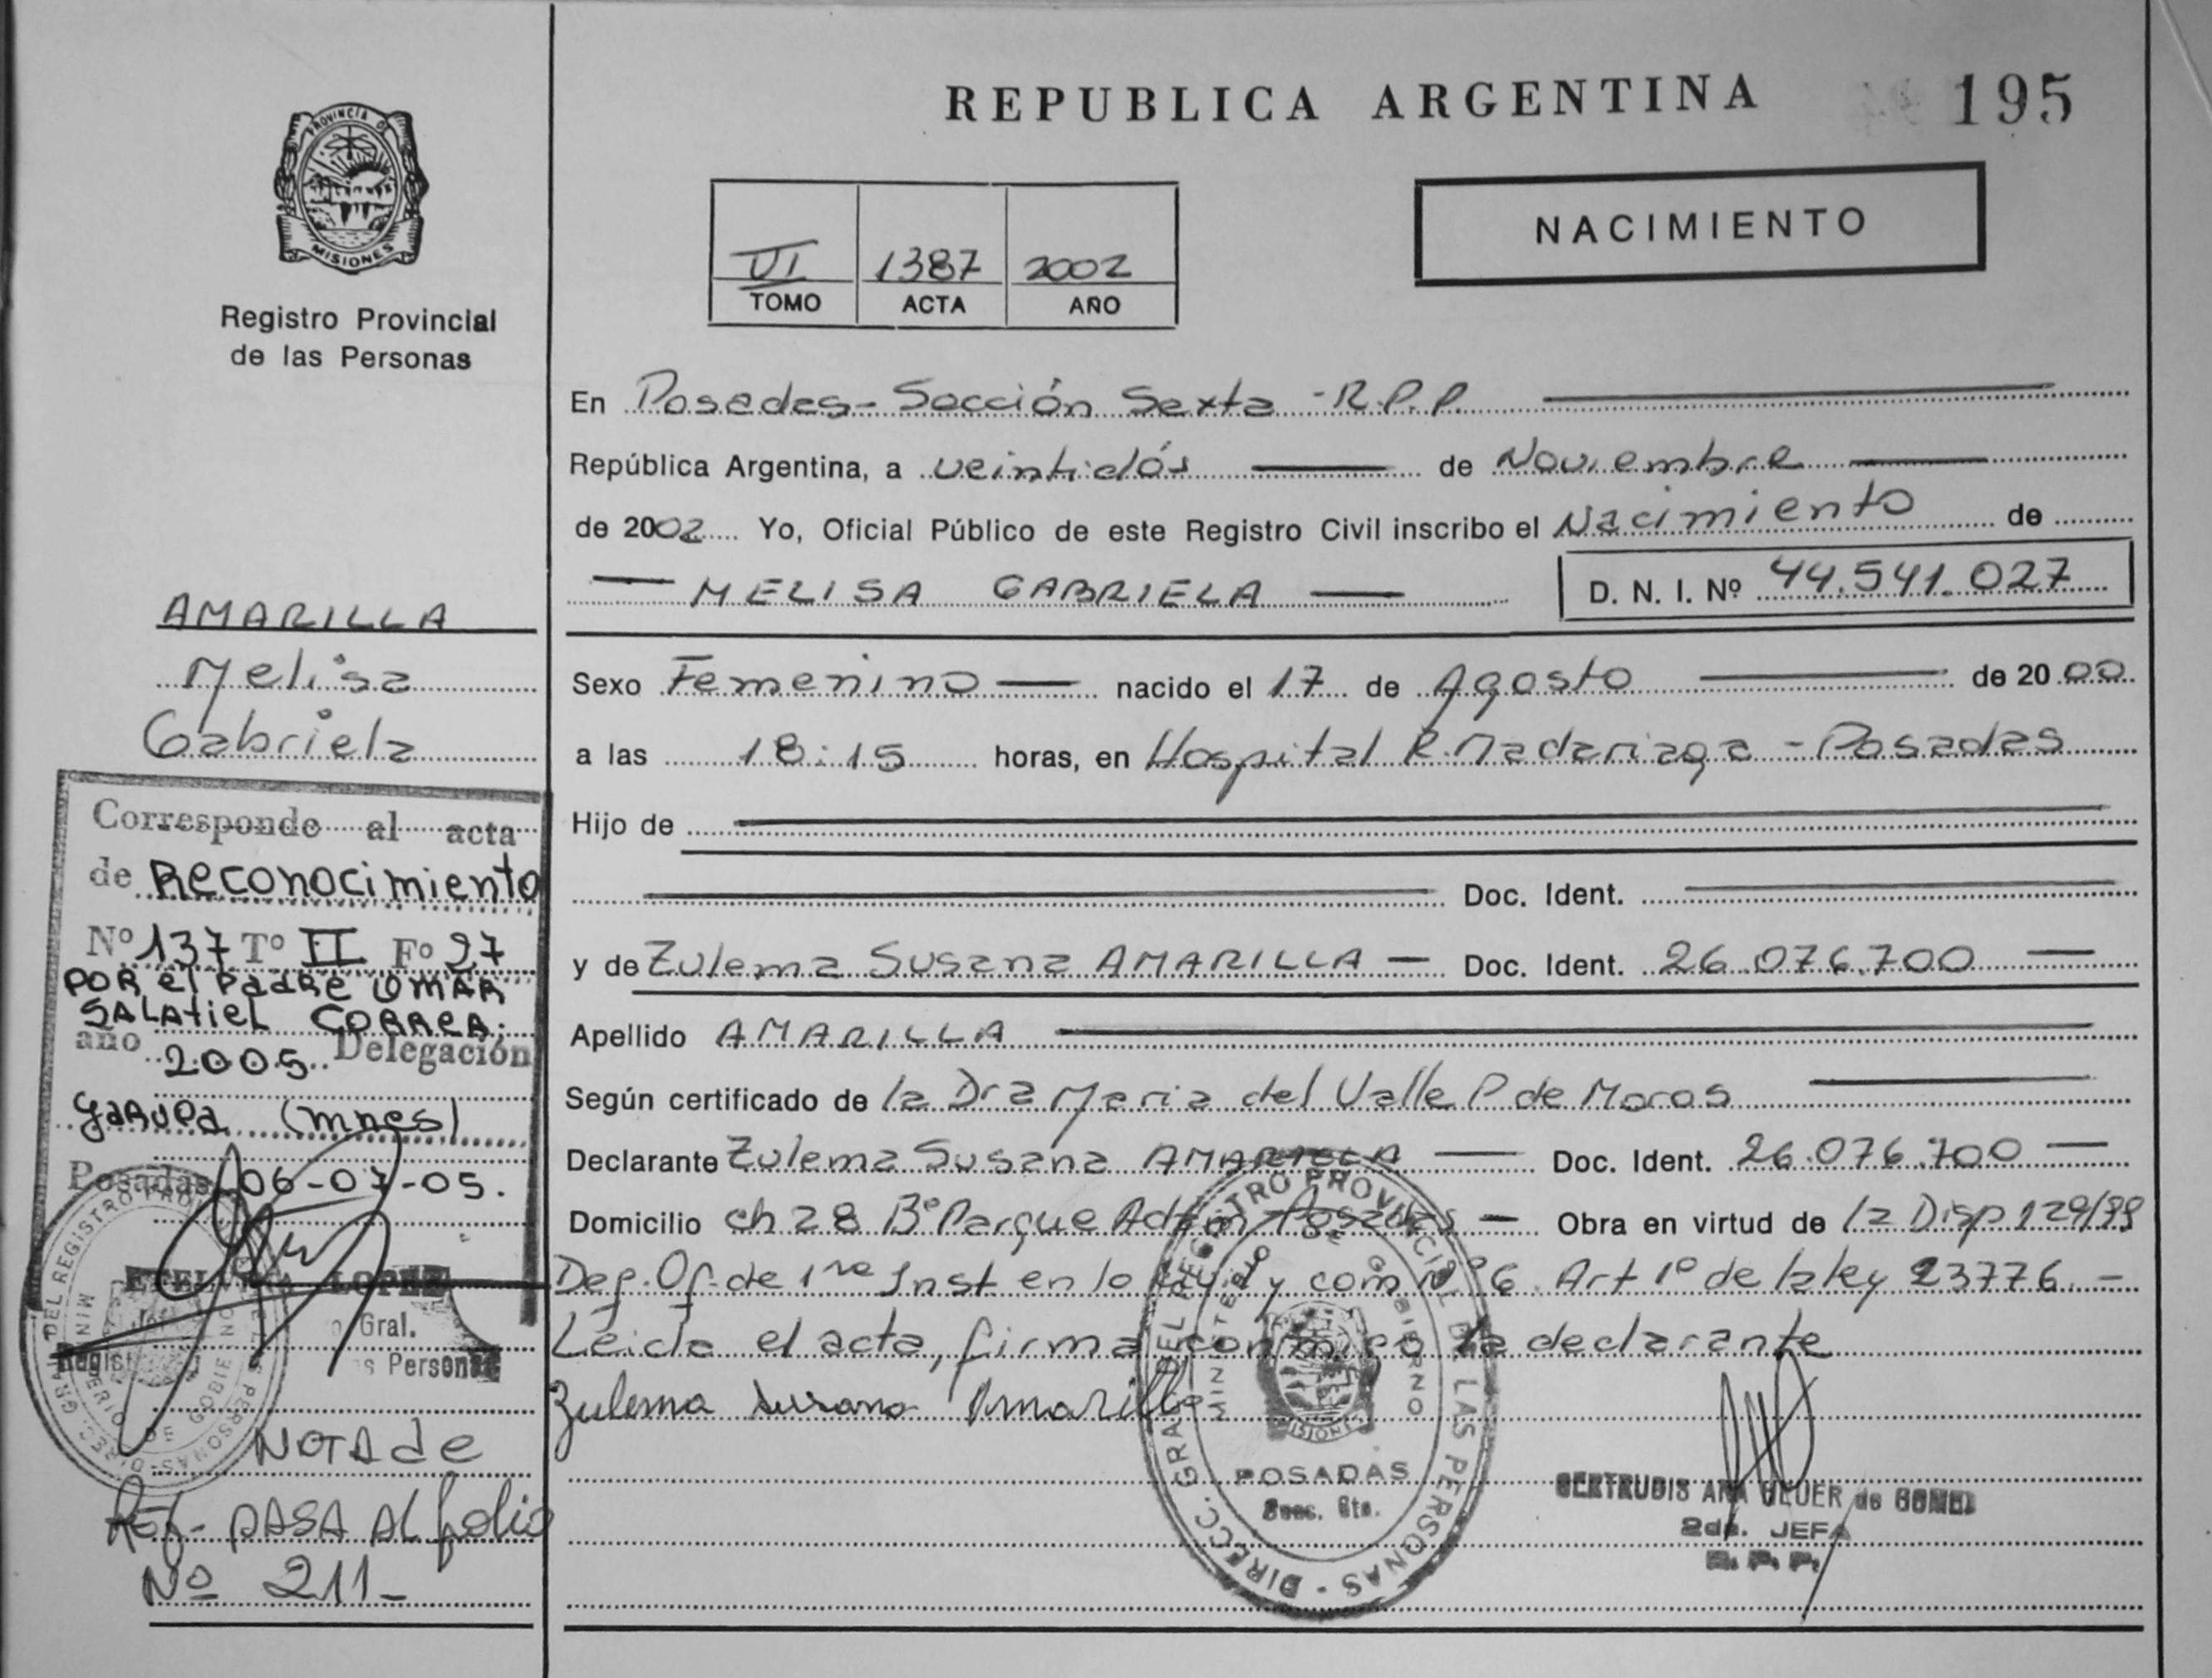 REPUBLICA ARGENTINA
195
PROVINCIA DE
MISIONES
Registro Provincial
de las Personas
NACIMIENTO
VI 1387 2002
TOMO ACTA AÑO
En Posadas - Sección Sexta - R.P.P.
República Argentina, a veintidós de Noviembre
de 2002 Yo, Oficial Público de este Registro Civil inscribo el Nacimiento de
MELISA GABRIELA D. N. I. Nº 44.541.027
Sexo Femenino nacido el 17 de Agosto de 2000
a las 18:15 horas, en Hospital R. Madariaga - Posadas
Hijo de
Doc. Ident.
y de Zulema Susana AMARILLA Doc. Ident. 26.076.700
Apellido AMARILLA
Según certificado de la Dra Maria del Valle P de Moros
Declarante Zulema Susana AMARILLA Doc. Ident. 26.076.700
Domicilio ch 28 Bº Parque Adam Posadas Obra en virtud de la Disp 129/99
Def. Of. de 1ra Inst en lo y com Nº 6. Art 1º de la ley 23776.
Leida el acta, firma conmigo la declarante
Zulema Susana Amarilla
DIRECC. GRAL. DEL REGISTRO PROVINCIAL DE LAS PERSONAS
MINISTERIO DE GOBIERNO
MISIONES
POSADAS
Secc. 6ta.
GERTRUDIS ANA de GOMEZ
2da. JEFA
R. P. P.
AMARILLA
Melisa
Gabriela
Corresponde al acta
de Reconocimiento
Nº 137 Tº II Fº 97
POR el PADRE OMAR
SALAtiEL CORREA.
año 2005 Delegación
gaRUPA (mnes)
Posadas 06-07-05.
LOPEZ
Gral.
Personas
NOTA de
Ref- PASA AL folio
Nº 211-